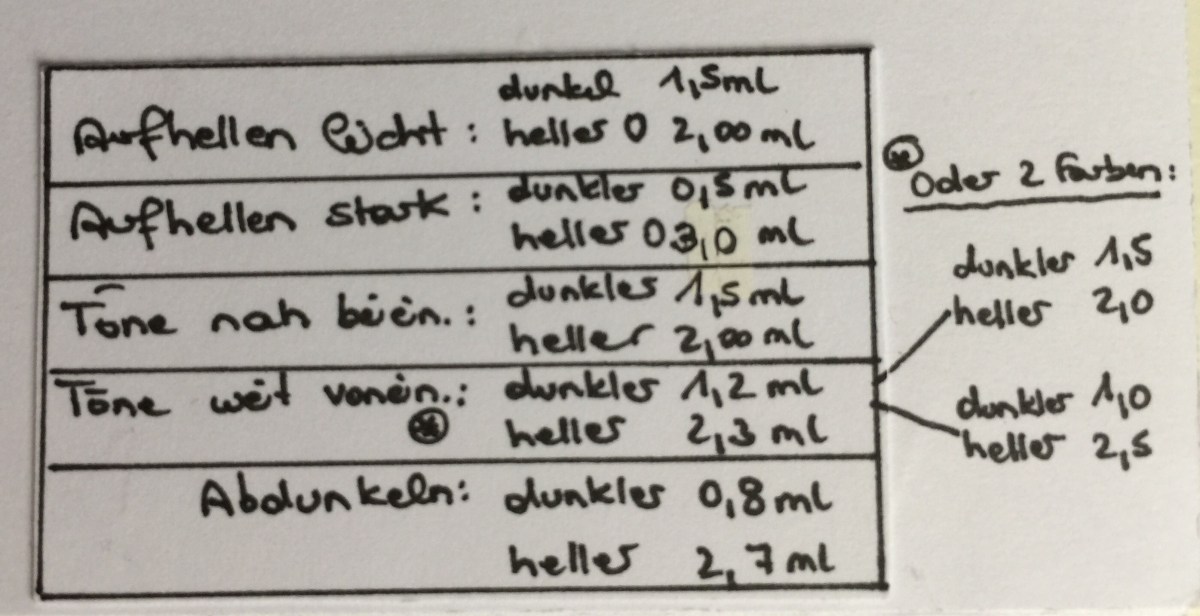 dunkel 1,5ml
Aufhellen leicht: helles 0 2,00 ml
Aufhellen stark: dunkles 0,5 ml
helles 0 3,0 ml
Töne nah beiein.: dunkles 1,5 ml
heller 2,00 ml
Töne weit vonein.: dunkles 1,2 ml
* helles 2,3 ml
Abdunkeln: dunkles 0,8 ml
helles 2,7 ml
* Oder 2 Farben:
dunkler 1,5
heller 2,0
dunkler 1,0
heller 2,5